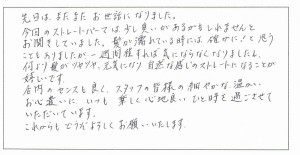 先日は、またまたお世話になりました。
今回のストレートパーマは少し臭いがあるかもしれませんと
お聞きしていました。髪が濡れている時には確かに!と思う
こともありましたが一週間程すれば気にならなくなりましたし、
何より髪がツヤツヤ、元気になり自然な感じのストレートになることが
嬉しいです。
店内のセンスも良く、スタッフの皆様の細やかな、温かい
お心遣いに、いつも楽しく心地良いひと時を過ごさせて
いただいています。
これからもどうかよろしくお願いいたします。